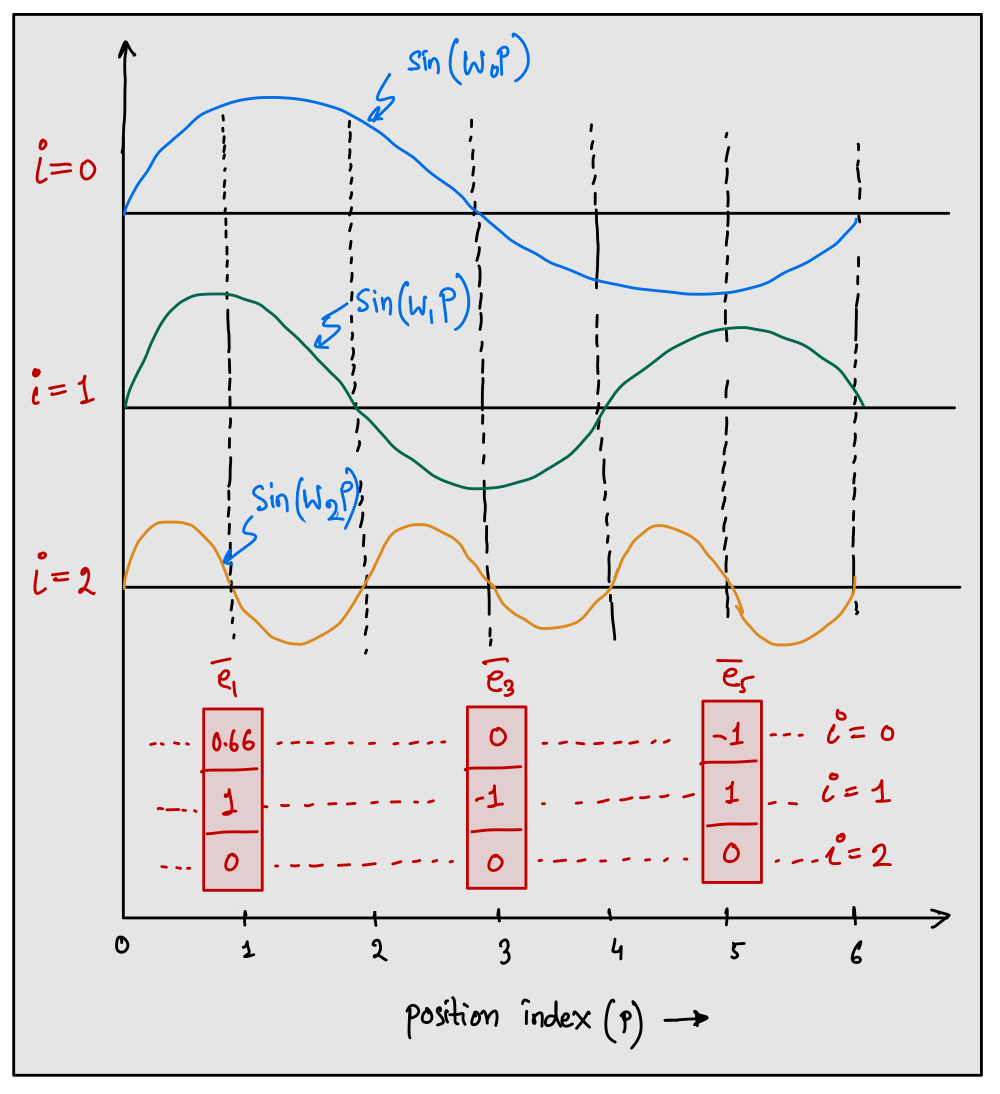 sin(W₀P)
i=0
sin(W₁P)
i=1
sin(W₂P)
i=2
e̅₁ e̅₃ e̅₅
0.66 0 -1 i=0
1 -1 1 i=1
0 0 0 i=2
0 1 2 3 4 5 6
position index (p) →